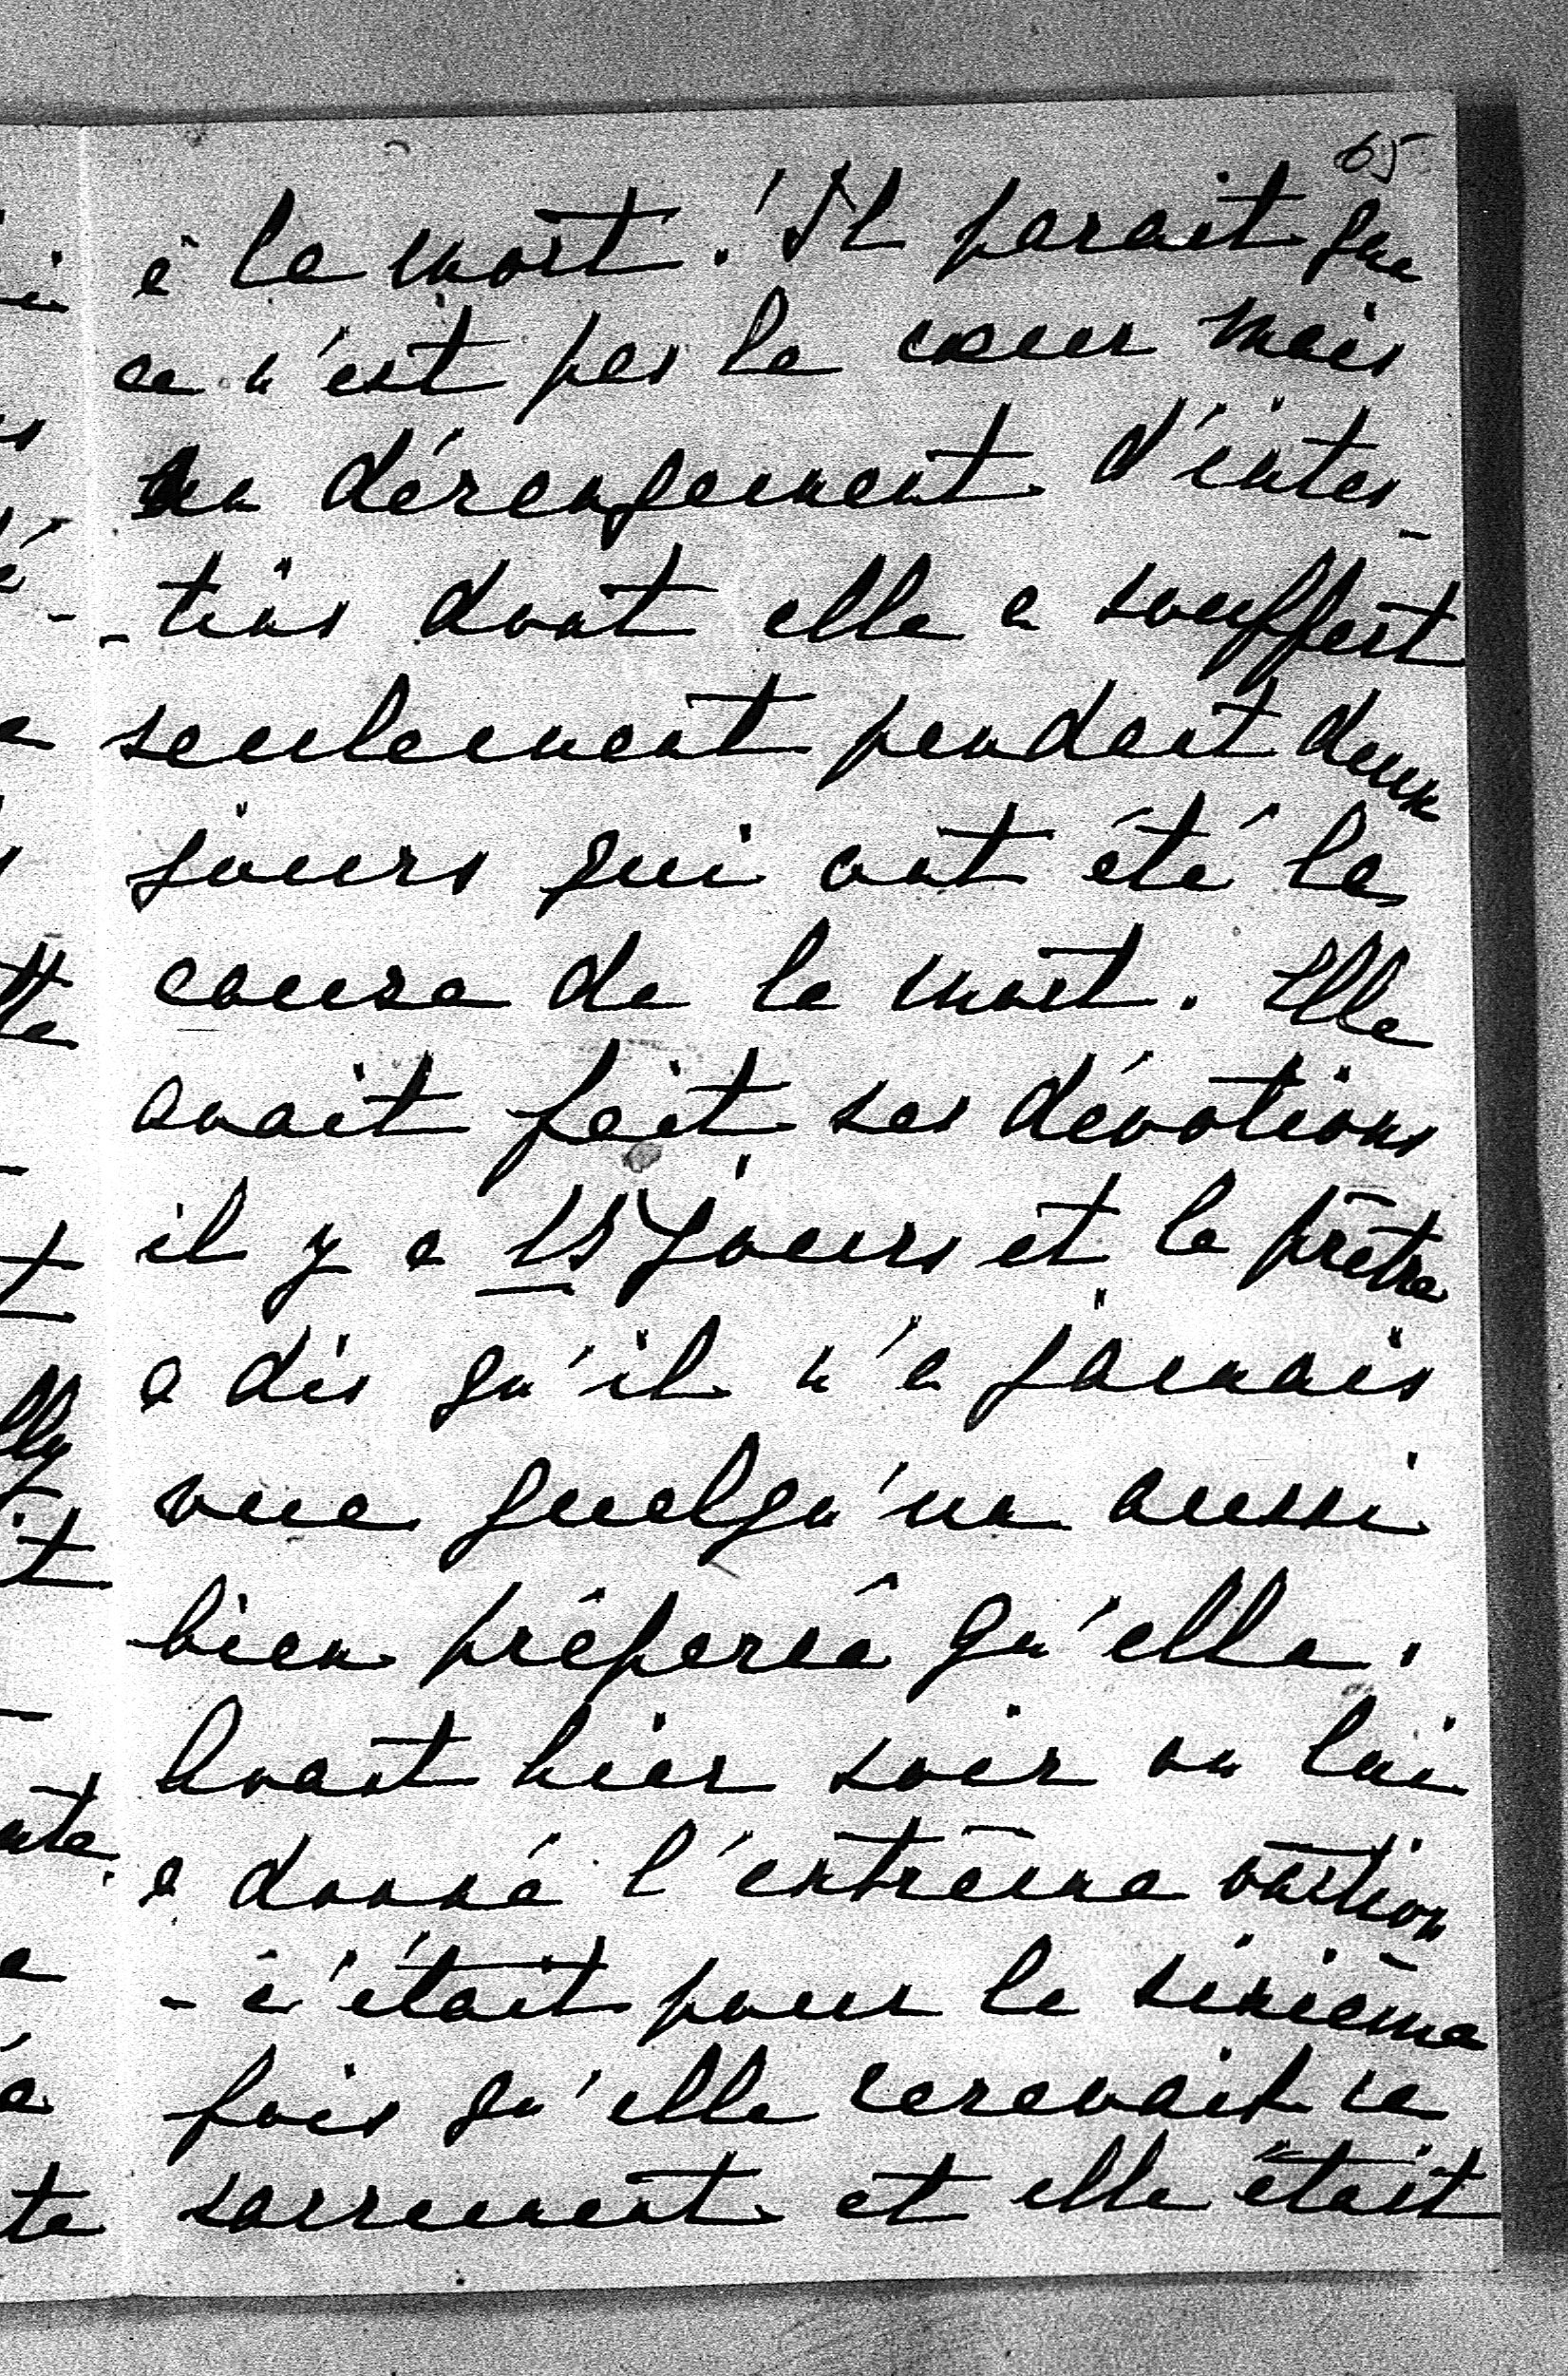 65
à la mort! Il parait que
ce n'est pas le coeur mais
un dérangement d'intes-
-tins dont elle a souffert
seulement pendant deux
jours qui ont été la
cause de la mort. Elle
avait fait ses dévotions
il y a 15 jours et le prêtre
a dis qu'il n'a jamais
vue quelqu'un aussi
bien préparée qu'elle.
Avant hier soir on lui
a donné l'extrême onction
- c'était pour la sixième
fois qu'elle recevait ce
sacrement et elle était